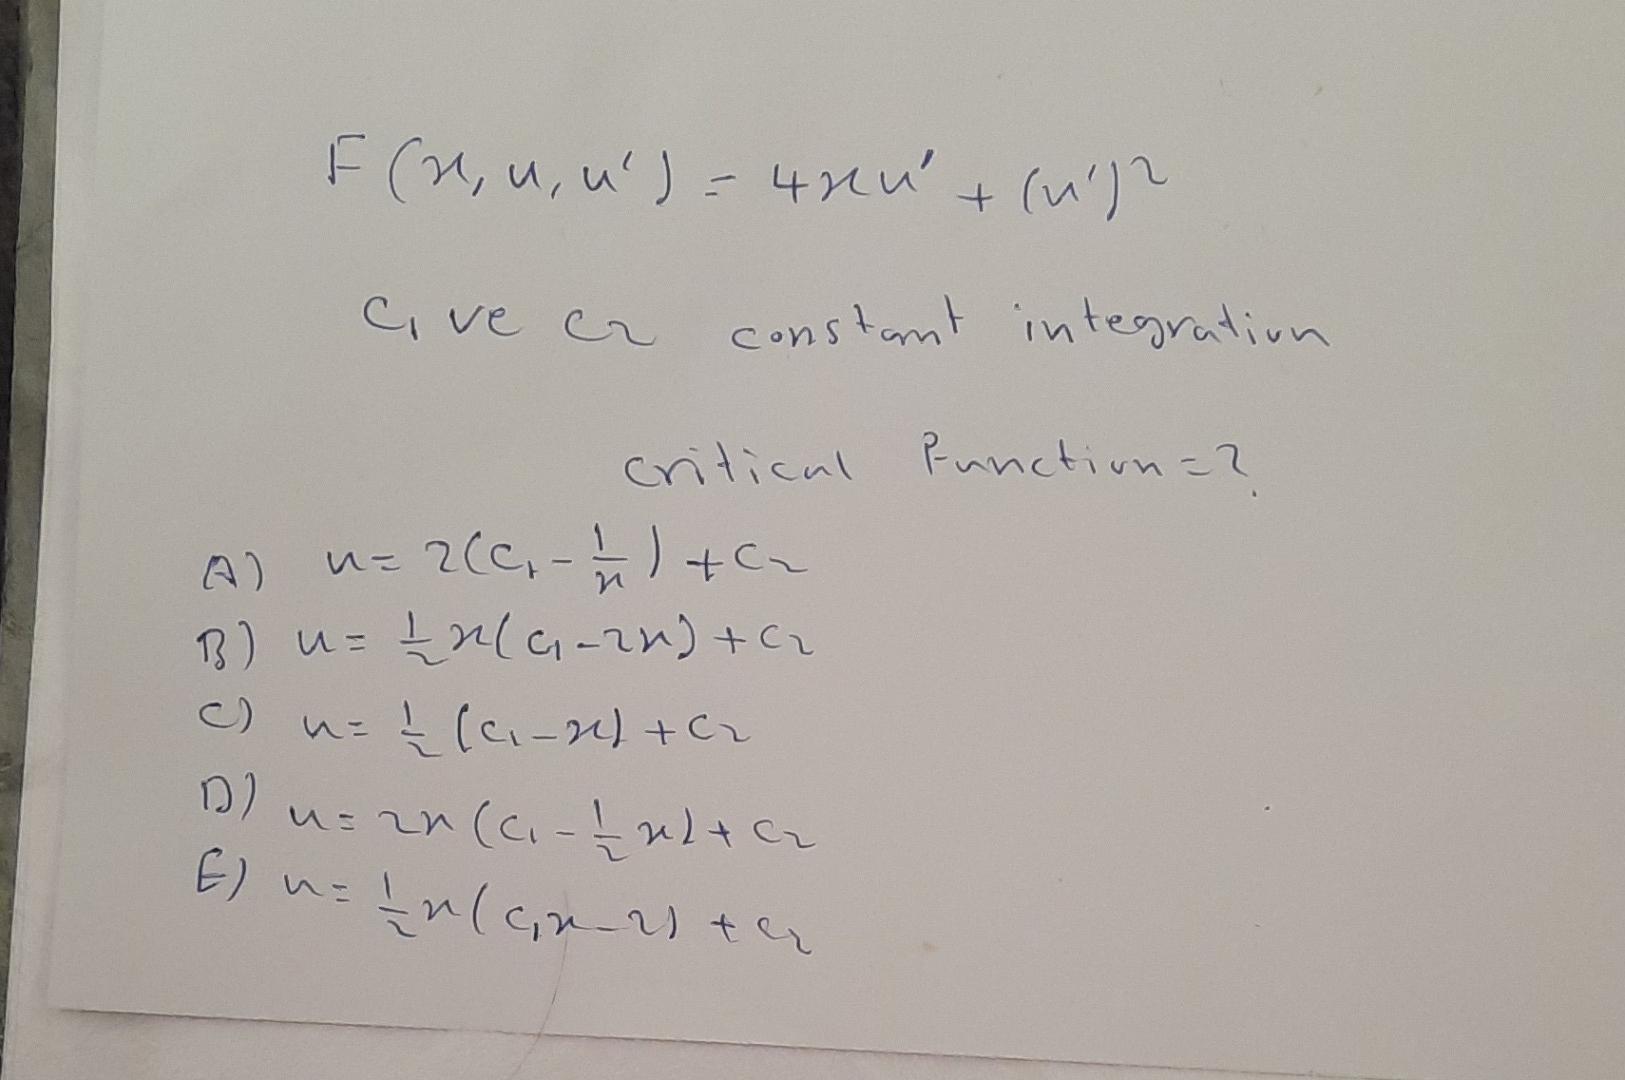 F(x, u, u') = 4xu' + (u')²
C₁ ve C₂ constant integration
critical Function = ?
A) u = 2(C₁ - 1/x) + C₂
B) u = 1/2 x(C₁ - 2x) + C₂
C) u = 1/2 (C₁ - x) + C₂
D) u = 2x(C₁ - 1/2 x) + C₂
E) u = 1/2 x(C₁x - 2) + C₂